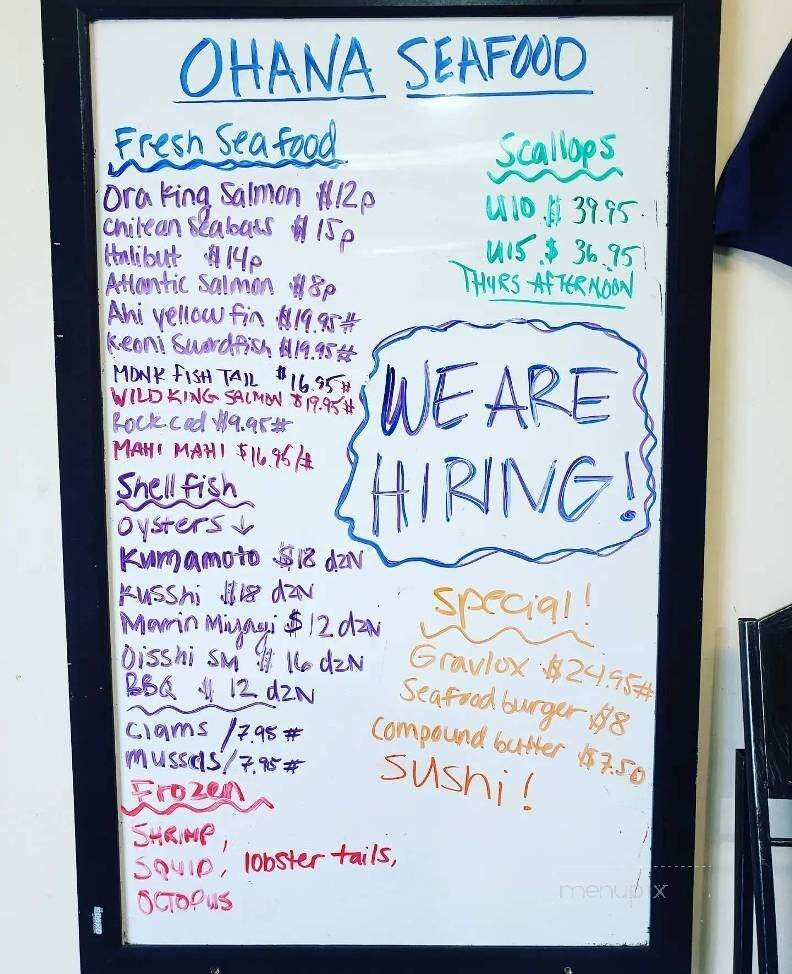 OHANA SEAFOOD
Fresh Seafood
Ora King Salmon $12p
Chilean Seabass $15p
Halibut $14p
Atlantic Salmon $8p
Ahi yellow fin $19.95#
Keoni Swordfish $19.95#
MONK FISH TAIL $16.95#
WILD KING SALMON $19.95#
Rock cod $9.95#
MAHI MAHI $16.95/#
Shellfish
Oysters ↓
Kumamoto $18 dzN
Kusshi $18 dzN
Marin Miyagi $12 dzN
Oisshi SM $16 dzN
BBQ $12 dzN
Clams /7.95#
Mussels/7.95#
Frozen
SHRIMP,
SQUID, lobster tails,
OCTOPUS
Scallops
U10 $ 39.95
U15 $ 36.95
THURS AFTERNOON
WE ARE
HIRING!
Special!
Gravlox $24.95#
Seafood burger $8
Compound butter $7.50
Sushi!
menupix